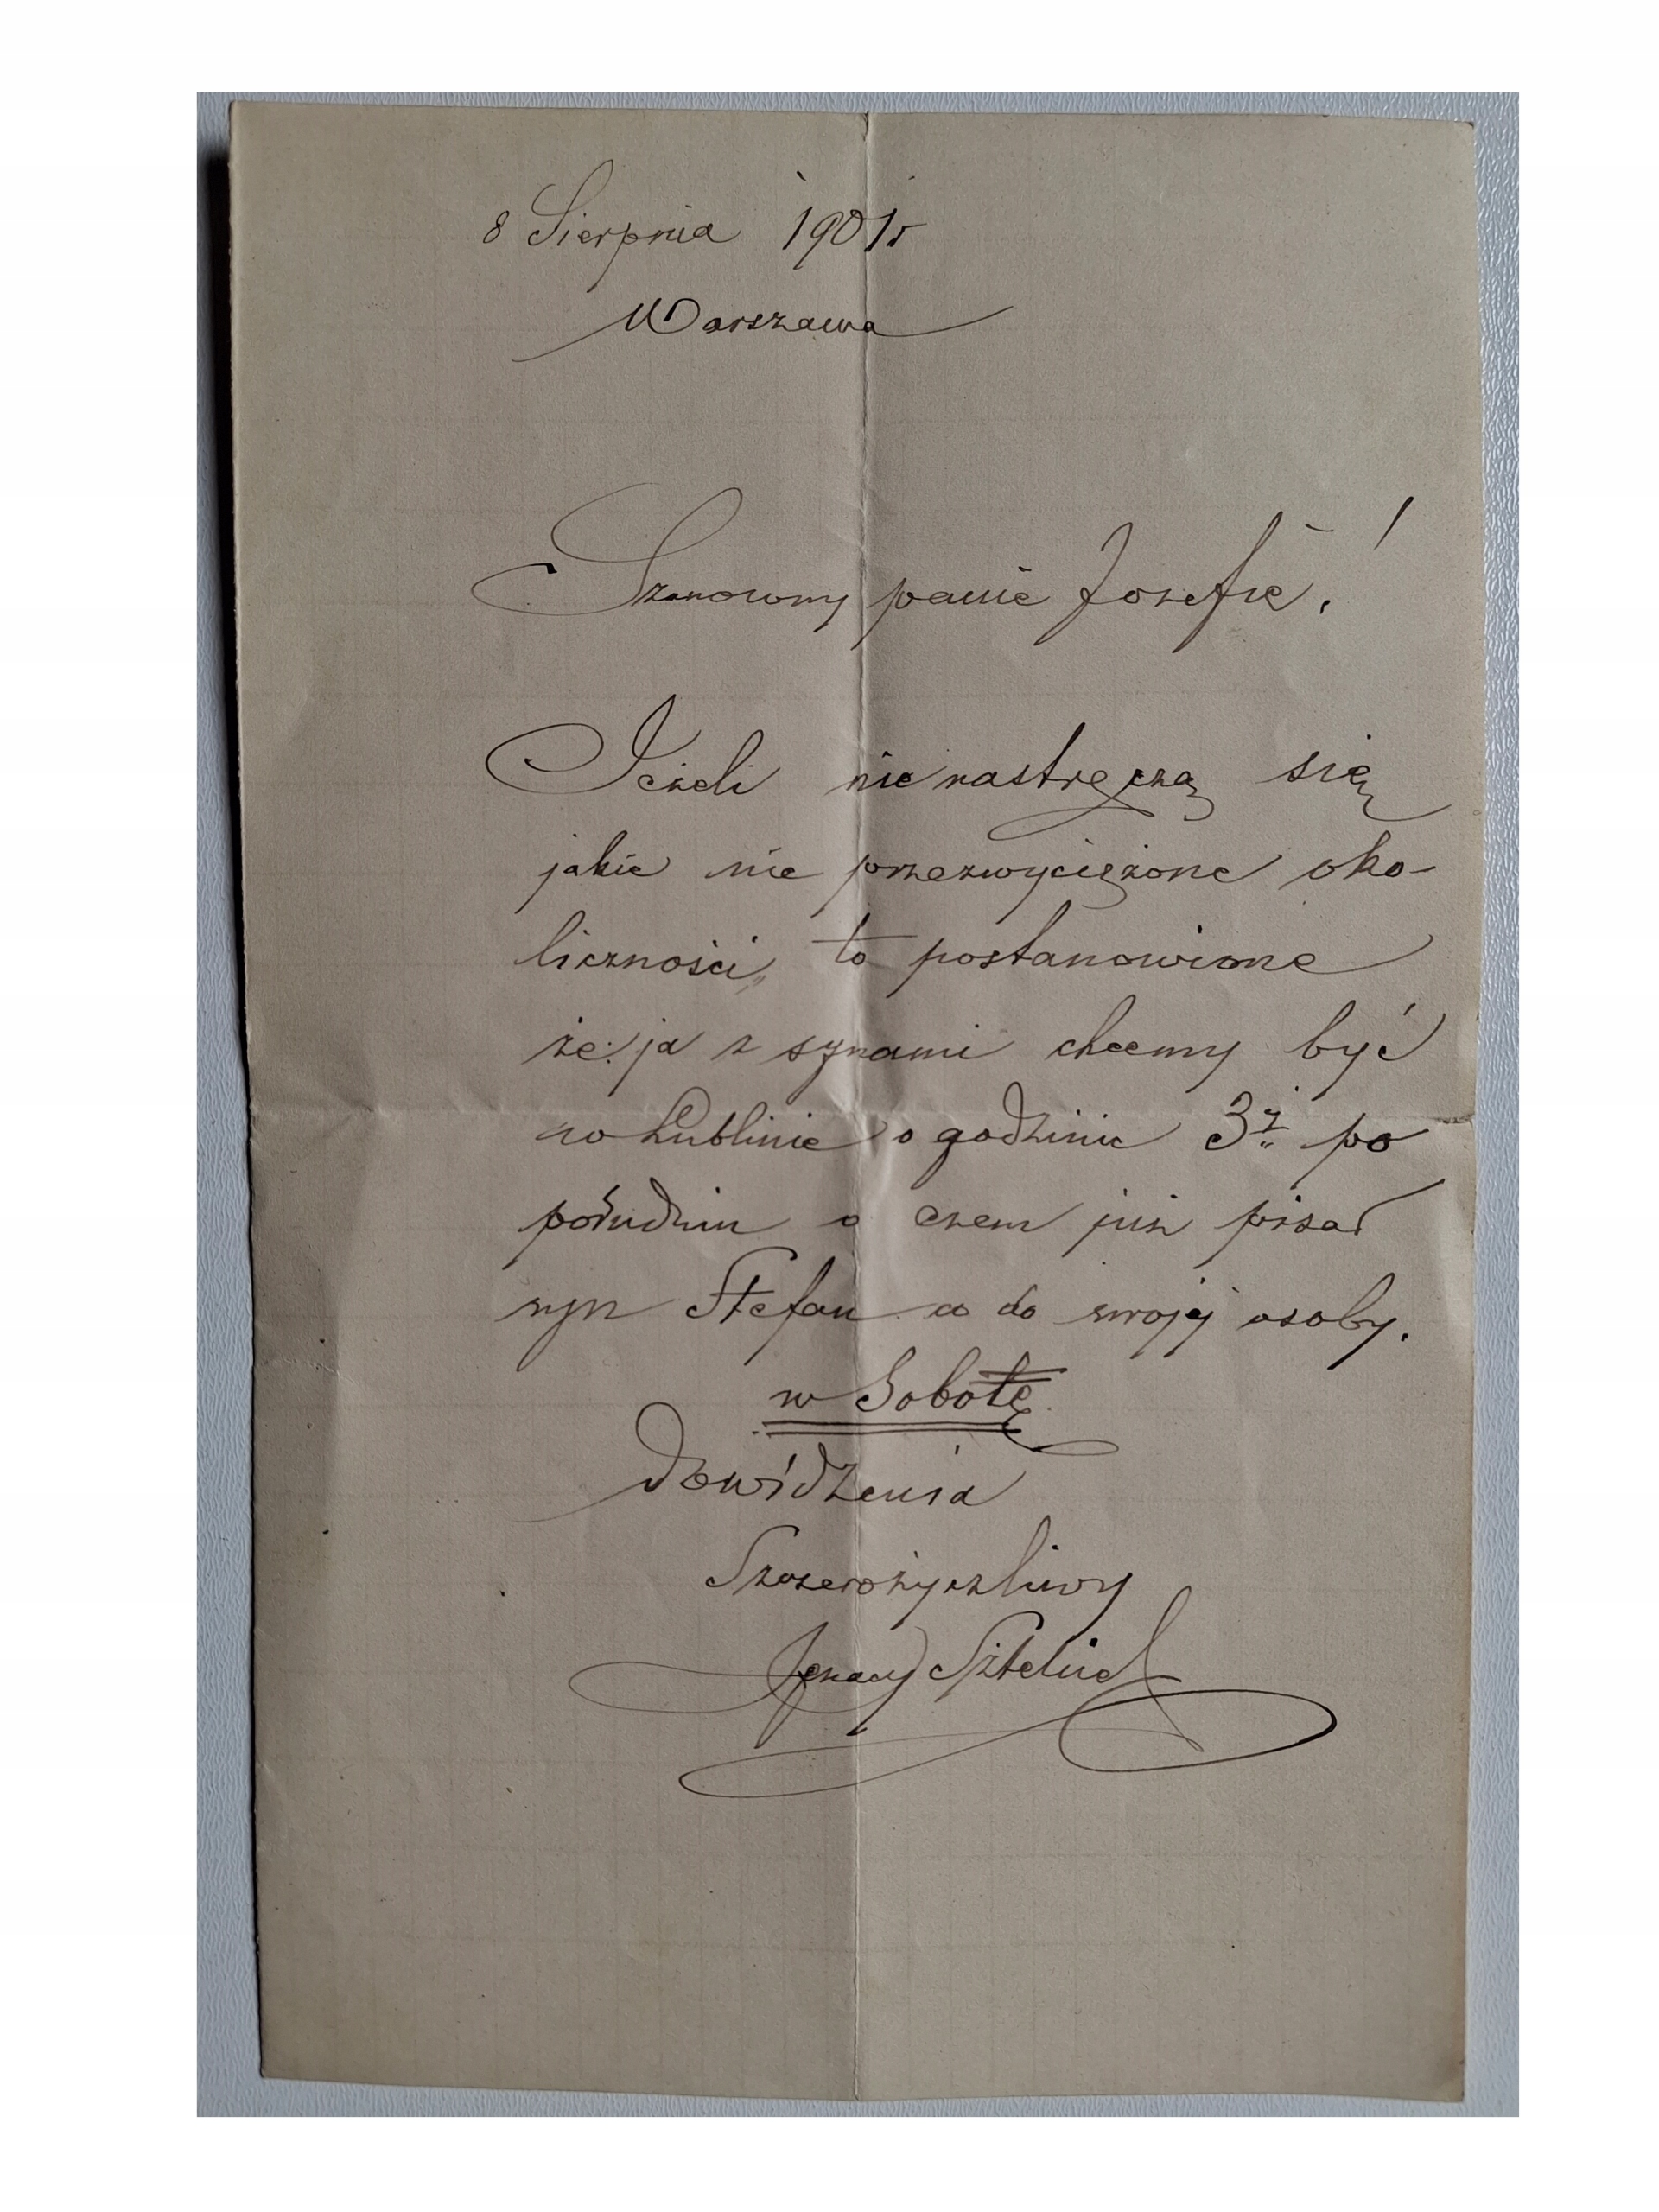 8 Sierpnia 1901 r
Warszawa
Szanowny panie Józefie!
Jeżeli nie nastręczą się
jakie nie przezwyciężone oko-
liczności, to postanowione
że ja z synami chcemy być
w Lublinie o godzinie 3ej po
południu o czem już pisał
syn Stefan co do swojej osoby.
w Sobotę
Dowidzenia
Szczerożyczliwy
Ignacy